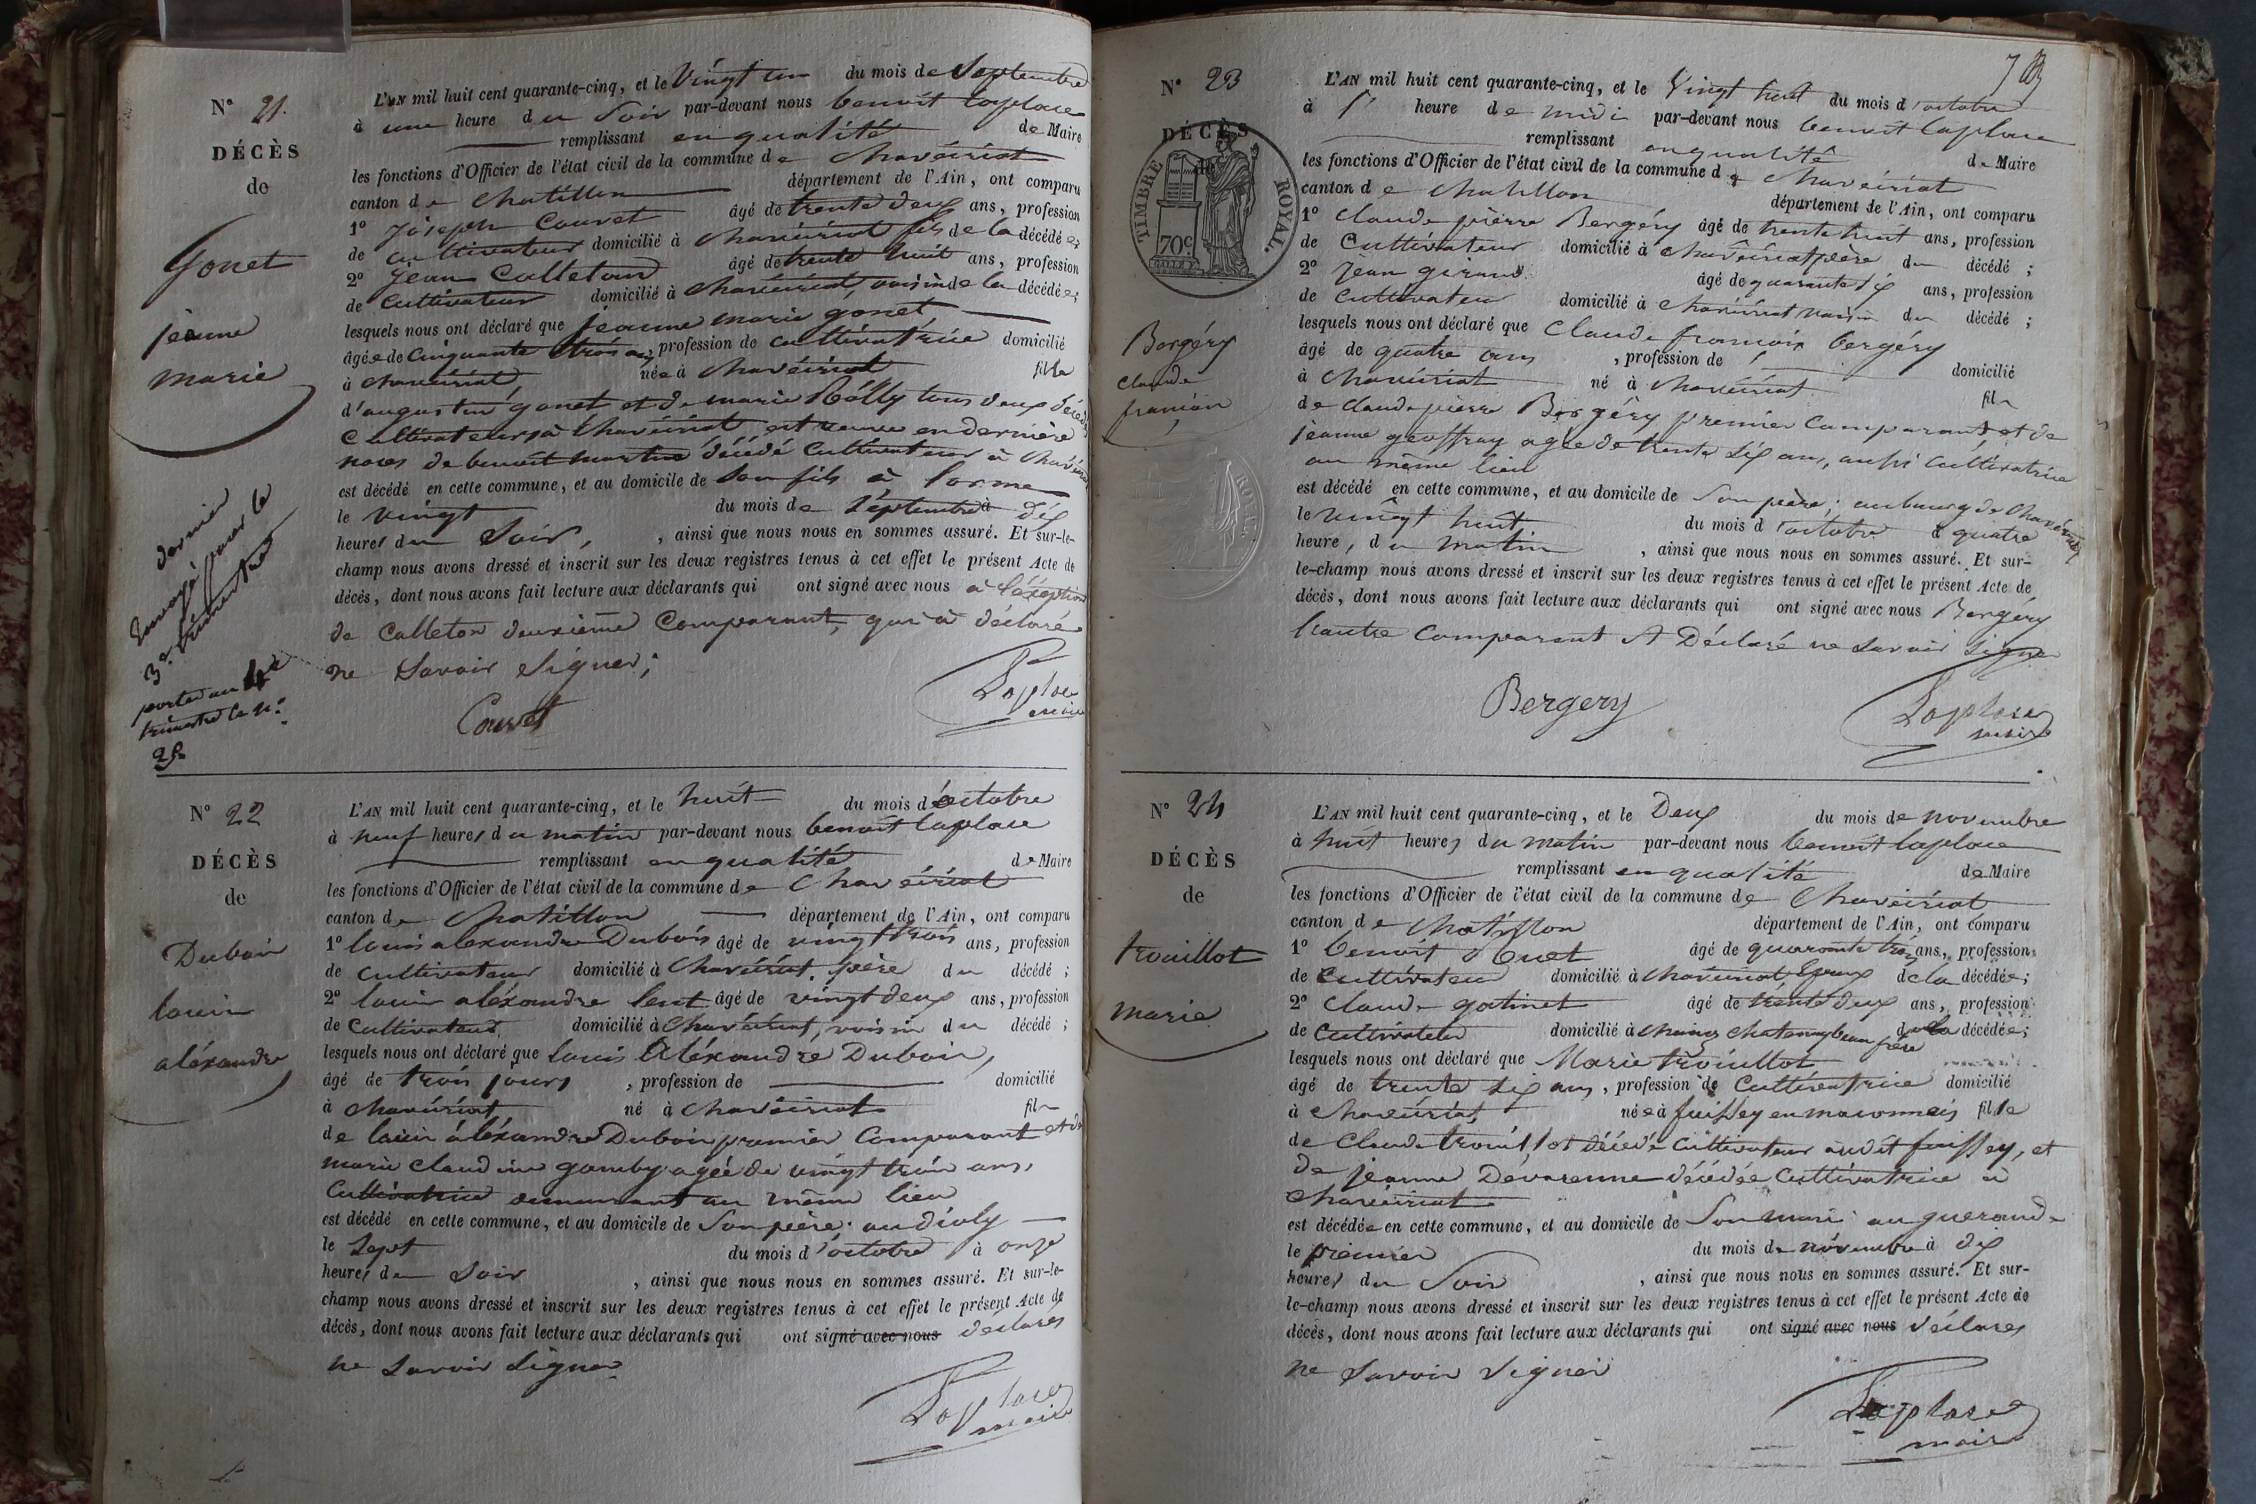 N° 21.
DÉCÈS
de
Gonet
jeanne
marie
L'AN mil huit cent quarante-cinq, et le Vingt un du mois de Septembre
à une heure du Soir par-devant nous benoit laplace
remplissant en qualité de Maire
les fonctions d'Officier de l'état civil de la commune de Chaveiriat
canton de Chatillon département de l'Ain, ont comparu
1° Joseph Couvet âgé de trente deux ans, profession
de cultivateur domicilié à Chaveiriat fils de la décédée;
2° Jean Calleton âgé de trente huit ans, profession
de Cultivateur domicilié à Chaveiriat, voisin de la décédée;
lesquels nous ont déclaré que jeanne marie gonet
âgée de Cinquante trois ans, profession de cultivatrice domicilié
à chaveiriat née à chavéiriat fille
d'augustin gonet et de marie Rélly tous deux décédés
Cultivateurs à Chaveiriat et veuve en dernière
noces de benoit martin décédé Cultivateur à Chavéiriat
est décédé en cette commune, et au domicile de Son fils à lorme
le vingt du mois de Séptembre à dix
heures du Soir, , ainsi que nous nous en sommes assuré. Et sur-le-
champ nous avons dressé et inscrit sur les deux registres tenus à cet effet le présent Acte de
décès, dont nous avons fait lecture aux déclarants qui ont signé avec nous à l'éxéption
de Calleton deuxième Comparant, qui à déclaré
ne Savoir Signer;
Couvet
Laplace
maire
dernier
Envoyé pour le
3e trimestre
porter au 4e
trimestre le n°
25
N° 22
DÉCÈS
de
Duboin
louis
aléxandre
L'AN mil huit cent quarante-cinq, et le huit du mois d'octobre
à neuf heures du matin par-devant nous benoit laplace
remplissant en qualité de Maire
les fonctions d'Officier de l'état civil de la commune de Chavéiriat
canton de Chatillon département de l'Ain, ont comparu
1° louis alexandre Dubois âgé de vingt trois ans, profession
de Cultivateur domicilié à Chavéiriat, père du décédé;
2° louis aléxandre lent âgé de vingt deux ans, profession
de Cultivateur domicilié à Chavéiriat, voisin du décédé;
lesquels nous ont déclaré que louis Aléxandre Duboin,
âgé de trois jours, profession de domicilié
à chavéiriat né à chavéiriat fils
de louis aléxandre Duboin premier Comparant et de
marie Claudine gamby agée de vingt trois ans,
Cultivatrice demeurant au même lieu
est décédé en cette commune, et au domicile de Son père au dioly
le Sept du mois d'octobre à onze
heures du Soir , ainsi que nous nous en sommes assuré. Et sur-le-
champ nous avons dressé et inscrit sur les deux registres tenus à cet effet le présent Acte de
décès, dont nous avons fait lecture aux déclarants qui ont signé avec nous déclarés
ne Savoir Signer
Laplace
maire
73
N° 23
DÉCÈS
de
TIMBRE ROYAL
70c
Bergéry
claude
francoin
L'AN mil huit cent quarante-cinq, et le Vingt huit du mois d'octobre
à 1 heure de midi par-devant nous benoit laplace
remplissant en qualité de Maire
les fonctions d'Officier de l'état civil de la commune de Chavéiriat
canton de Chatillon département de l'Ain, ont comparu
1° Claude pierre Bergéry âgé de trente huit ans, profession
de Cultivateur domicilié à Chavéiriat père du décédé;
2° jean giraud âgé de quarante six ans, profession
de Cultivateur domicilié à Chavéiriat voisin du décédé;
lesquels nous ont déclaré que Claude francoix bergéry
âgé de quatre ans , profession de domicilié
à Chavéiriat né à Chavéiriat fils
de Claude pierre Bergéry premier Comparant et de
jeanne geoffray agée de trente six ans, aussi Cultivatrice
au même lieu
est décédé en cette commune, et au domicile de Son père; au bourg de Chavéiriat
le vingt huit du mois d'octobre à quatre
heure, du matin , ainsi que nous nous en sommes assuré. Et sur-
le-champ nous avons dressé et inscrit sur les deux registres tenus à cet effet le présent Acte de
décès, dont nous avons fait lecture aux déclarants qui ont signé avec nous Bergéry
l'autre Comparant A Déclaré ne Savoir Signer
Bergery
Laplace
maire
N° 24
DÉCÈS
de
trouillot
marie
L'AN mil huit cent quarante-cinq, et le Deux du mois de novembre
à huit heures du matin par-devant nous benoit laplace
remplissant en qualité de Maire
les fonctions d'Officier de l'état civil de la commune de Chavéiriat
canton de Chatillon département de l'Ain, ont comparu
1° benoit âgé de quarante trois ans, profession
de Cultivateur domicilié à Chavéiriat Epoux de la décédée;
2° Claude gatinet âgé de trente deux ans, profession
de Cultivateur domicilié à beau frère de la décédée;
lesquels nous ont déclaré que Marie trouillot
âgé de trente six ans, profession de Cultivatrice domicilié
à Chavéiriat née à fuissey en maconnais fille
de Claude trouillot décédé Cultivateur audit fuissey, et
de jeanne Dévarenne décédée Cultivatrice à
Chavéiriat
est décédée en cette commune, et au domicile de Son mari au guerande
le premier du mois de novembre à dix
heures du Soir , ainsi que nous nous en sommes assuré. Et sur-
le-champ nous avons dressé et inscrit sur les deux registres tenus à cet effet le présent Acte de
décès, dont nous avons fait lecture aux déclarants qui ont signé avec nous déclarés
ne Savoir Signer
Laplace
maire